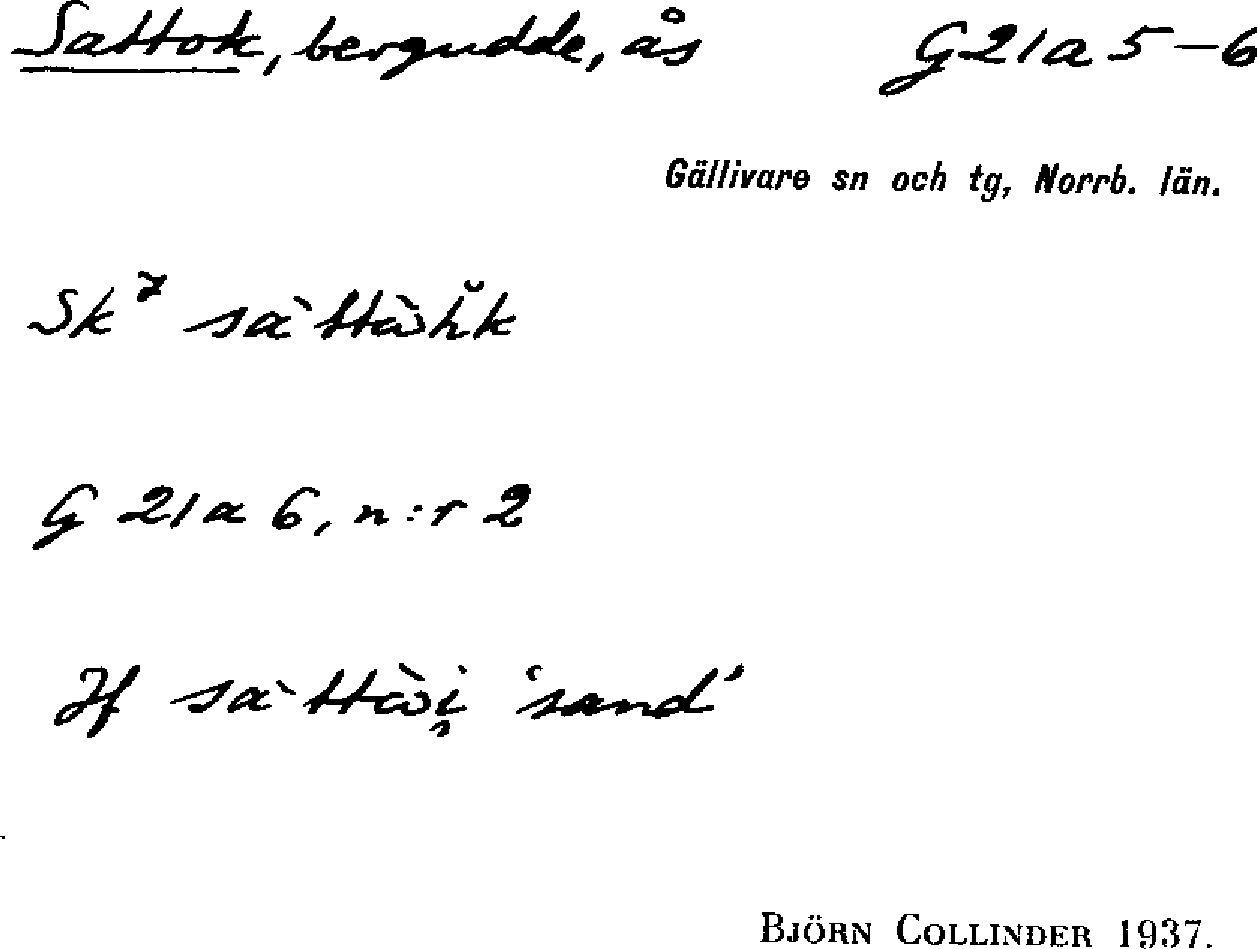 Sattok, bergudde, ås G21a 5–6
Gällivare sn och tg, Norrb. län.
Sk⁷
G 21a 6, n:r 2
Jf 'sand'
BJÖRN COLLINDER 1937.